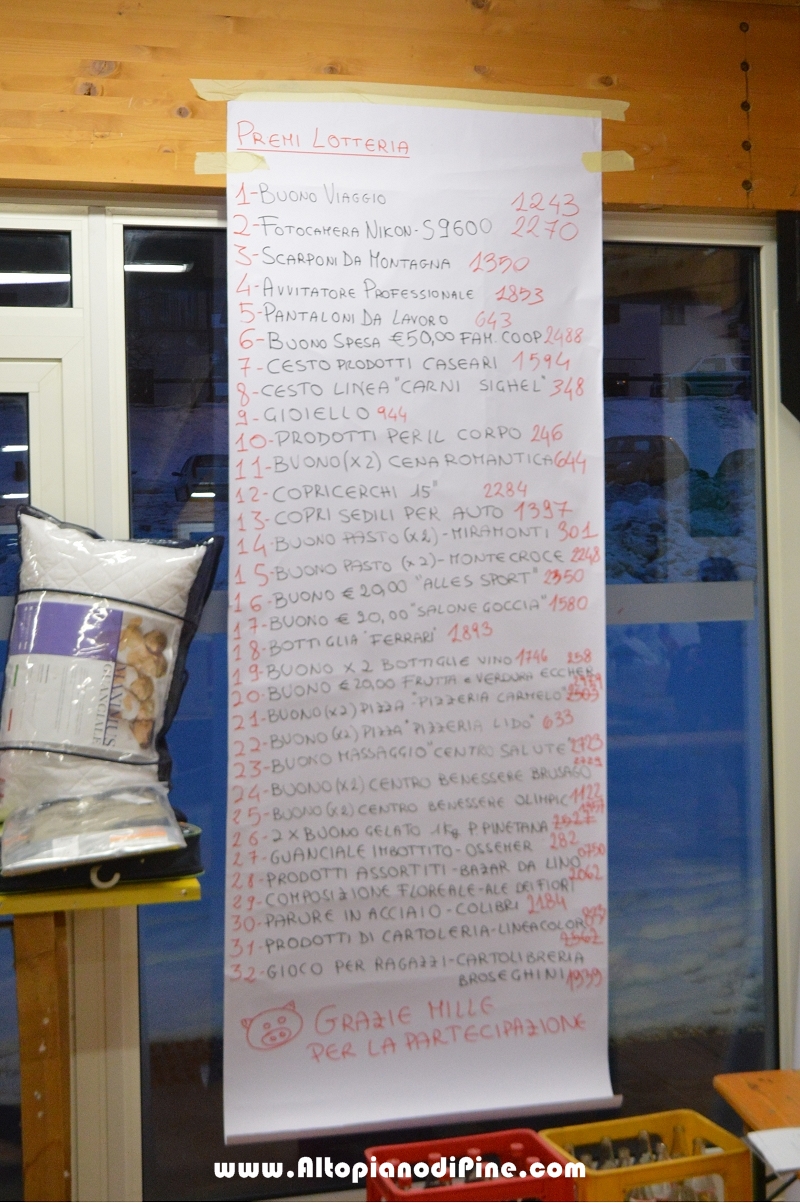 PREMI LOTTERIA
1-BUONO VIAGGIO 1243
2-FOTOCAMERA NIKON-S9600 2270
3-SCARPONI DA MONTAGNA 1350
4-AVVITATORE PROFESSIONALE 1853
5-PANTALONI DA LAVORO 643
6-BUONO SPESA €50,00 FAM. COOP 2488
7-CESTO PRODOTTI CASEARI 1594
8-CESTO LINEA "CARNI SIGHEL" 348
9-GIOIELLO 944
10-PRODOTTI PER IL CORPO 246
11-BUONO (X2) CENA ROMANTICA 644
12-COPRICERCHI 15" 2284
13-COPRI SEDILI PER AUTO 1397
14-BUONO PASTO (x2)-MIRAMONTI 301
15-BUONO PASTO (x2)-MONTECROCE 2248
16-BUONO €20,00 "ALLES SPORT" 2350
17-BUONO € 20,00 "SALONE GOCCIA" 1580
18-BOTTIGLIA "FERRARI" 1893
19-BUONO X 2 BOTTIGLIE VINO 1746 258
20-BUONO €20,00 FRUTTA e VERDURA ECCHER
21-BUONO (x2) PIZZA "PIZZERIA CARMELO"
22-BUONO (x2) PIZZA "PIZZERIA LIDO" 633
23-BUONO MASSAGGIO "CENTRO SALUTE" 2723
24-BUONO (x2) CENTRO BENESSERE BRUSAGO
25-BUONO (x2) CENTRO BENESSERE OLIMPIC 1122
26-2 X BUONO GELATO 1Kg P. PINETANA
27-GUANCIALE IMBOTTITO-OSSEMER 282
28-PRODOTTI ASSORTITI-BAZAR DA LINO
29-COMPOSIZIONE FLOREALE-ALE DEI FIORI 2062
30-PARURE IN ACCIAIO-COLIBRI 2184
31-PRODOTTI DI CARTOLERIA-LINEACOLOR
32-GIOCO PER RAGAZZI-CARTOLIBRERIA
BROSEGHINI 1939
GRAZIE MILLE
PER LA PARTECIPAZIONE
GUANCIALE
www.AltopianodiPine.com